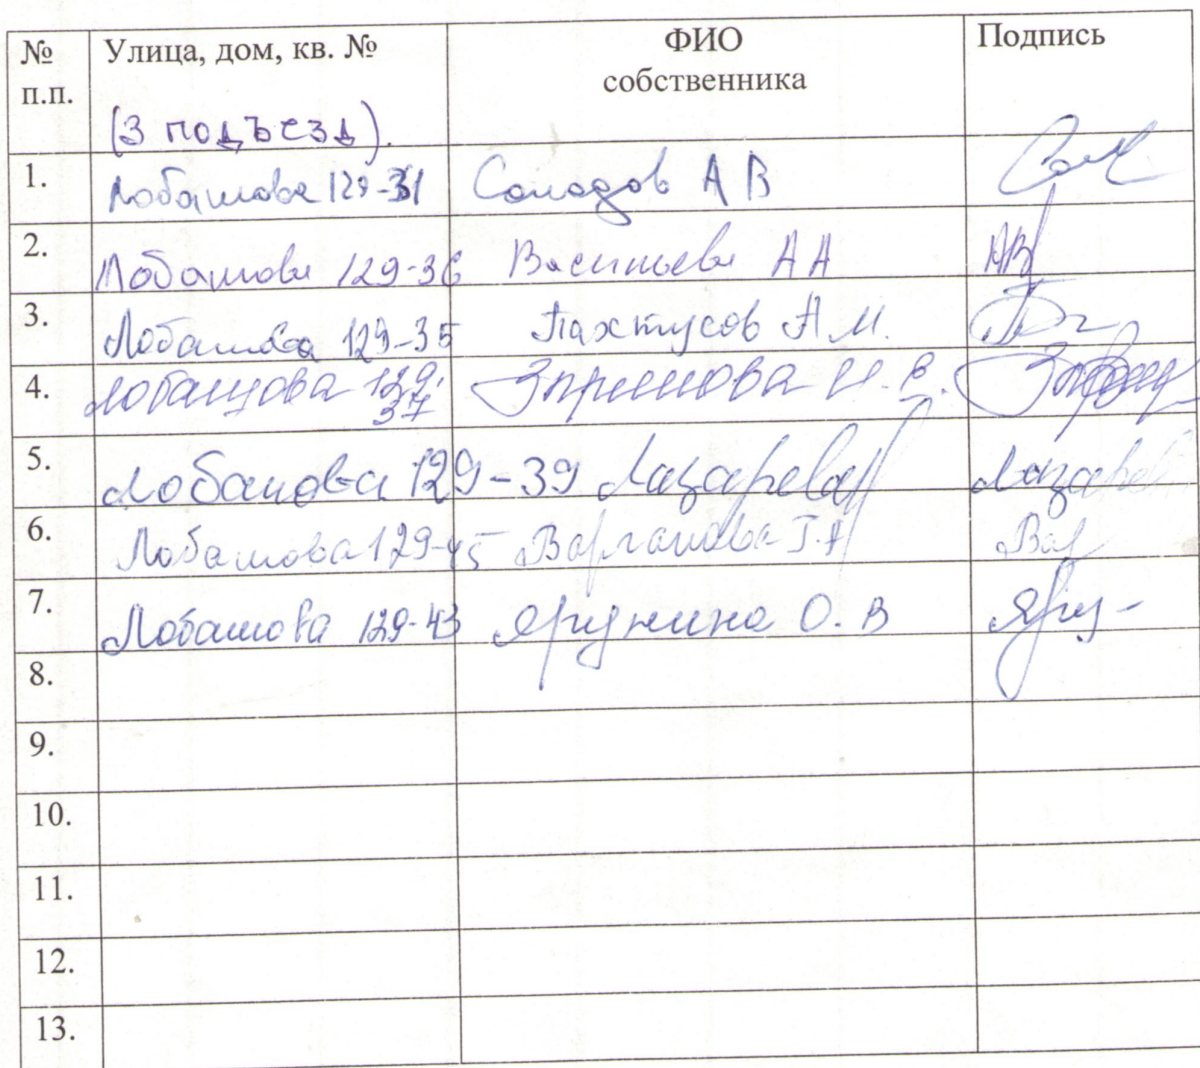 № п.п. Улица, дом, кв. № ФИО собственника Подпись
(3 подъезд).
1. Лобашова 129-31 Солодов А В Сол
2. Лобашова 129-36 Васильева А А АВ
3. Лобашова 129-35 Пахтусов А.М.
4. Лобашова 129-37 И. В.
5. Лобашова 129-39 Лазарева Лазарев
6. Лобашова 129-45 Варламова Т.А Вар
7. Лобашова 129-43 Яружина О. В Яру-
8.
9.
10.
11.
12.
13.